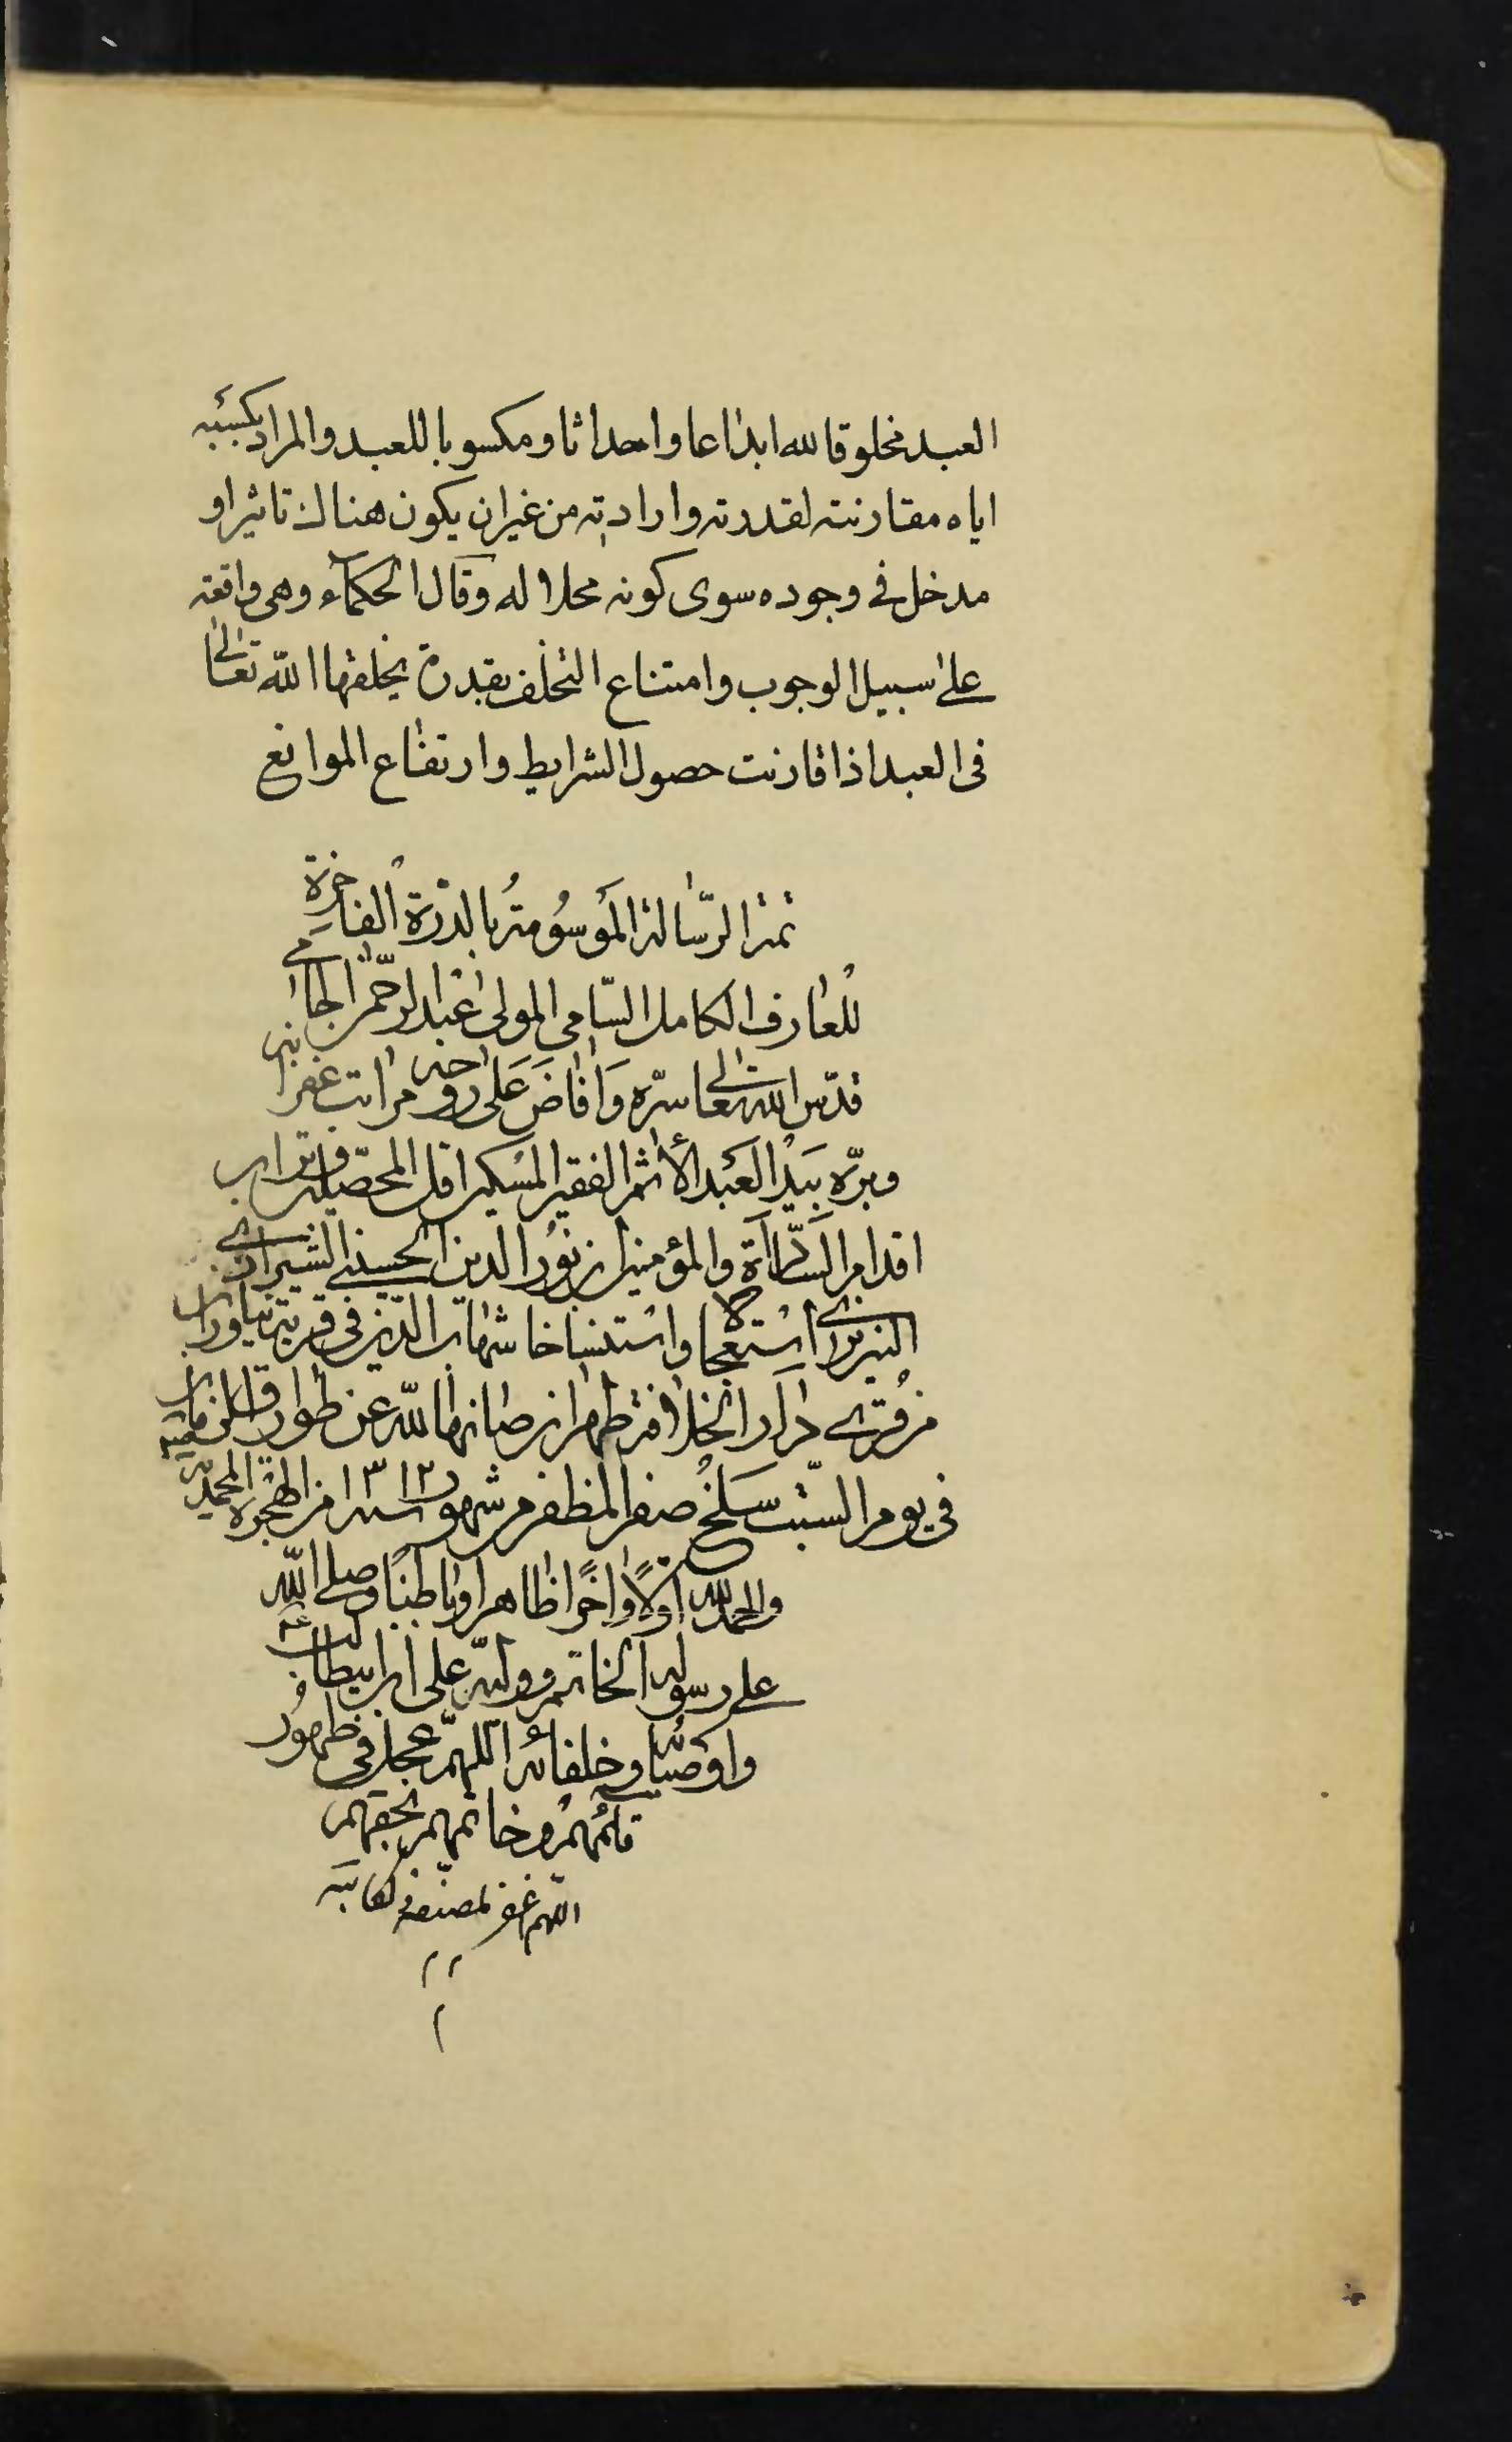 العبد مخلوقا لله ابداعا واحداثا ومكسوبا للعبد والمراد بكسبه
اياه مقارنته لقدرته وارادته من غير ان يكون هناك تاثير او
مدخل في وجوده سوى كونه محلا له وقال الحكمآء وهى واقعة
على سبيل الوجوب وامتناع التخلف بقدرة يخلقها الله تعالى
فى العبد اذا قارنت حصول الشرايط وارتفاع الموانع
تمت الرّسالة المَوسُومَةُ بالدّرة الفاخرة
للعارف الكامل السّامى المولى عبد الرحمن الجامي
قدّس الله تعالى سرّه وَافاضَ عَلى روحه مراتب غفرانه
وبرّه بيَد العَبد الأثم الفقير المسكين اقل المحصّلين وتراب
اقدام السّادة والمؤمنين ابن نوُر الدين الحسيني الشيرازي
النيريزى استعجالا واستنساخا شهاب الدّين فى قرية نياوران
من قرى دار الخلافة طهران صانها الله عن طوارق الزمان
فى يوم السّبت سَلخ صفر المظفر من شهور سنة ١٣١٢ من الهجرة المحمدية
والحمد لله اوّلًا واخرًا ظاهرا وباطنًا وصلى الله
على رسوله الخاتم و على
واوصيائه وخلفائه اللهمّ عجل فى ظهوُر
قائمُهم وخاتمهم بحقهم
اللهم اغفر لمصنفه ولكاتبه